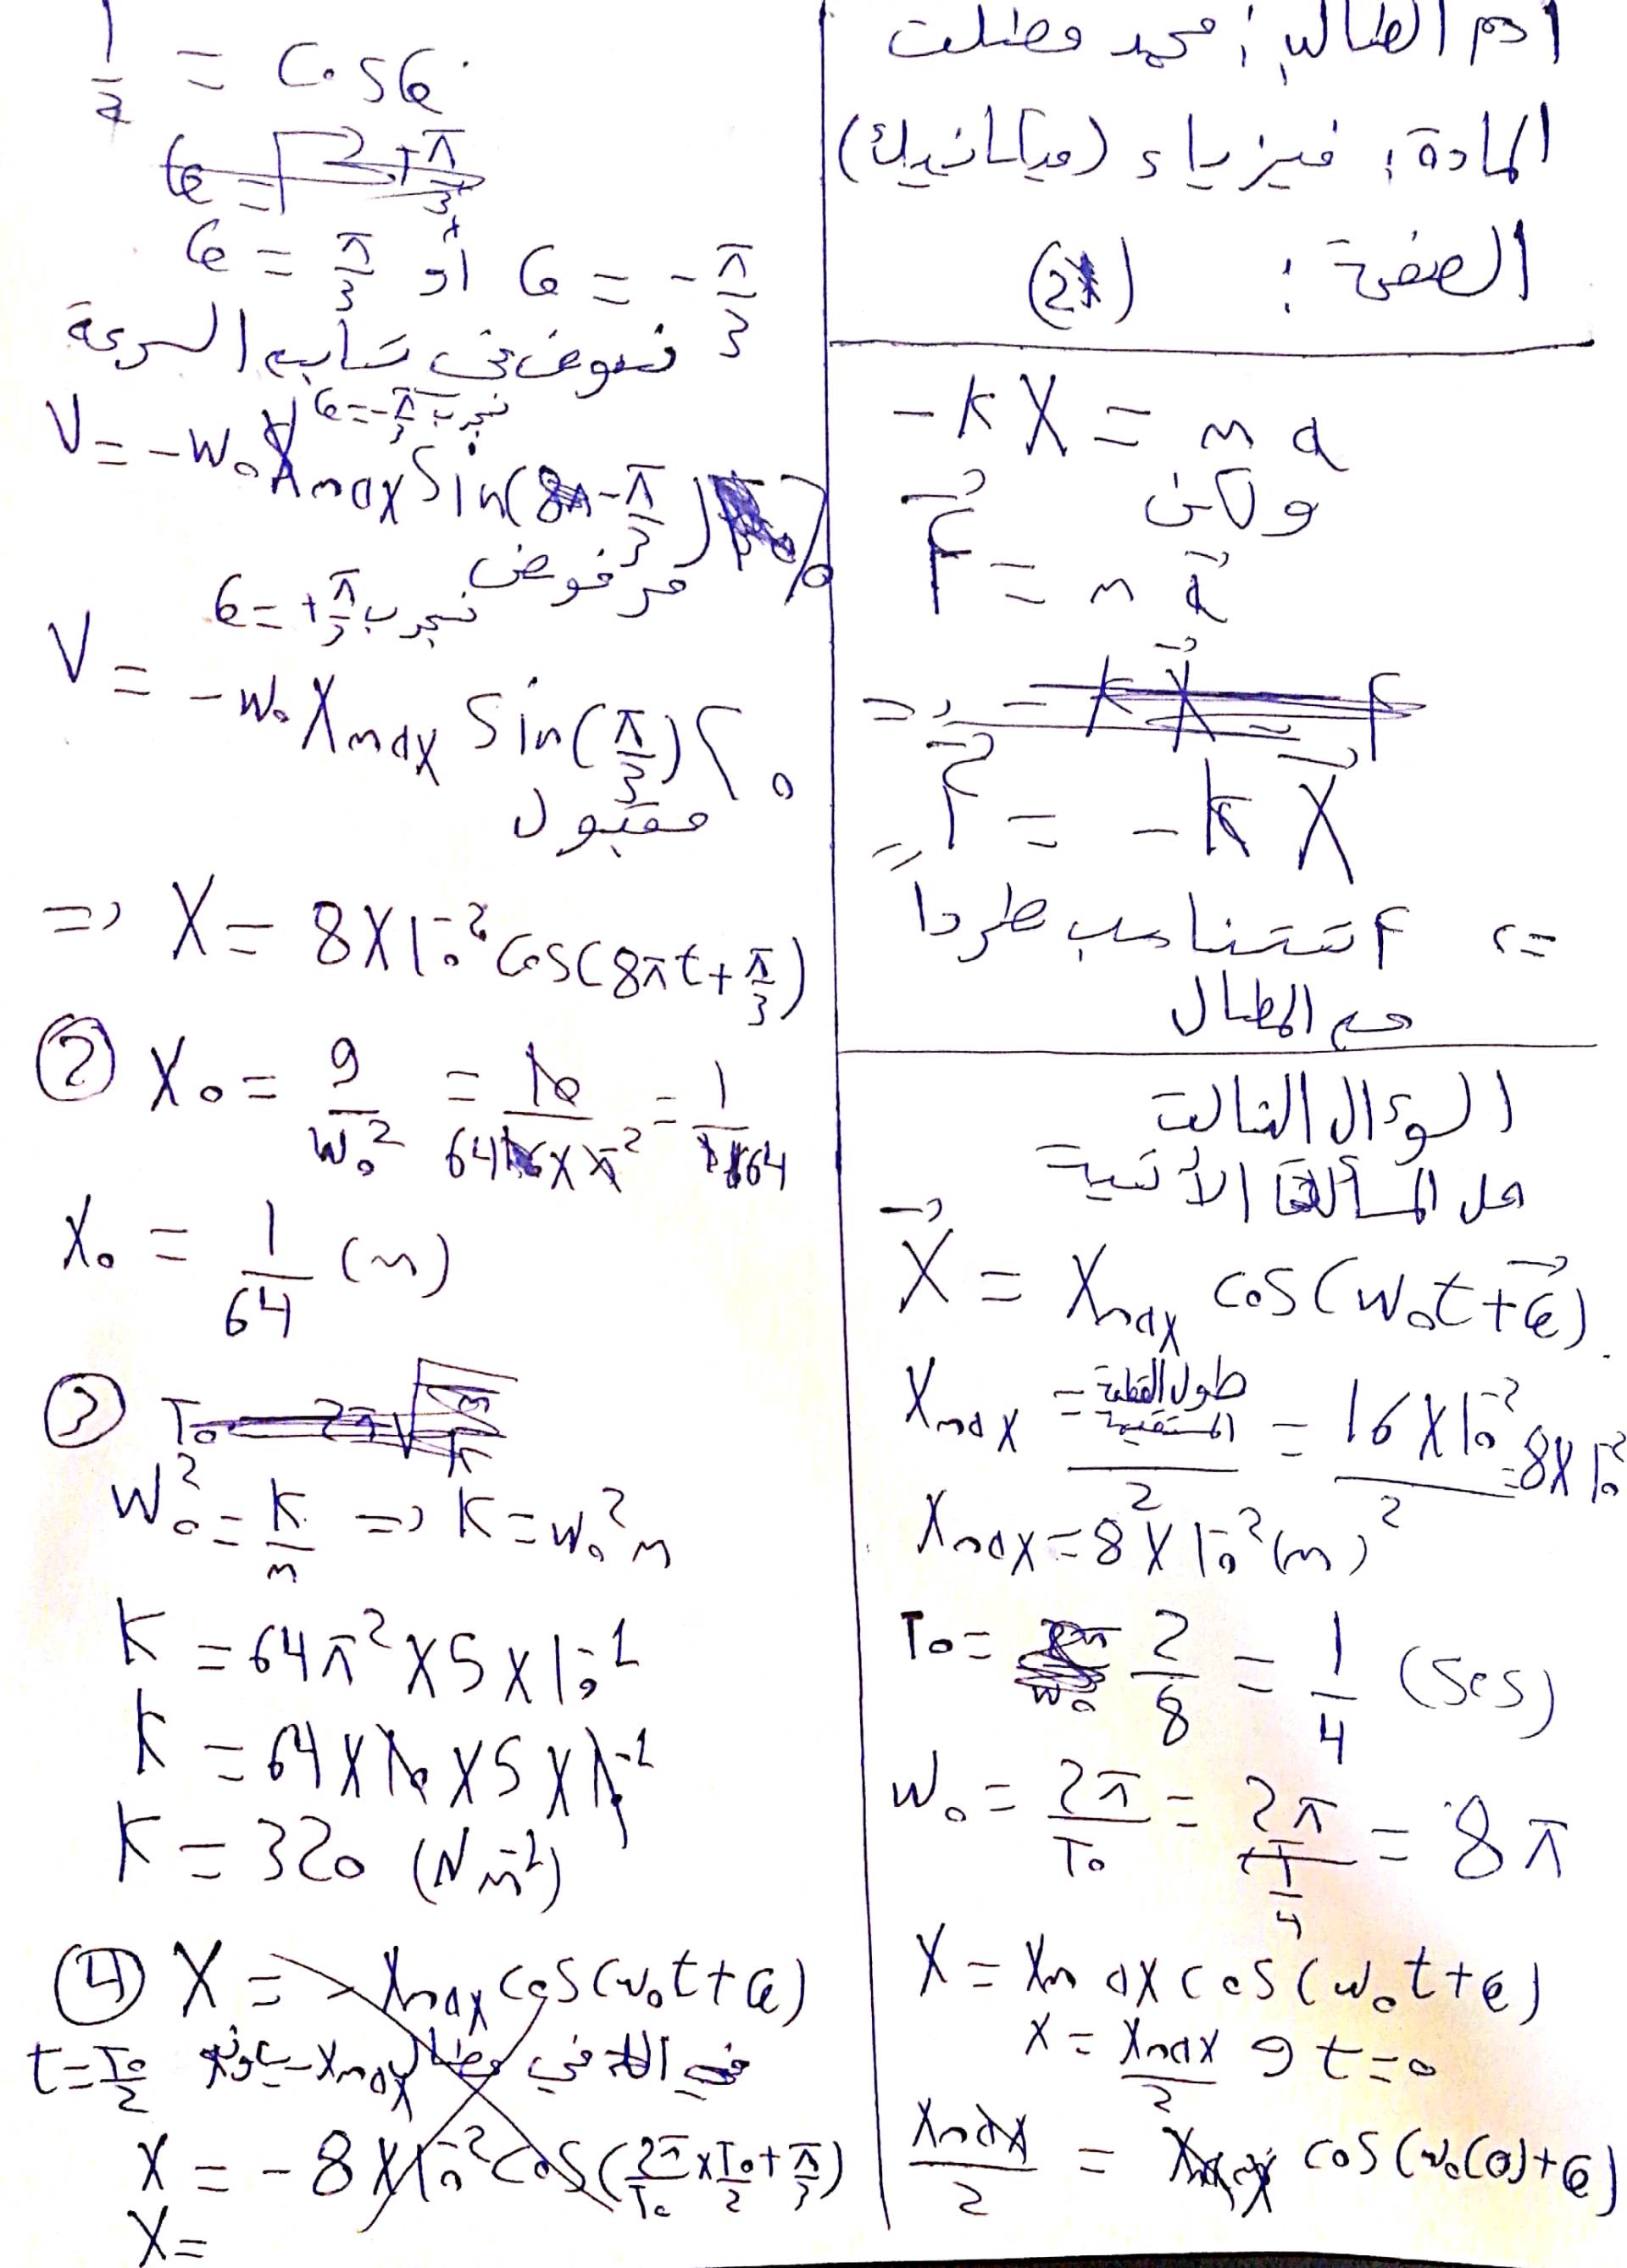 اسم الطالب: محمد
المادة: فيزياء (ميكانيك)
الصفحة: (2)
-k X = m a
ولكن
F⃗ = m a⃗
F⃗ = -k X⃗
=> F تتناسب طرداً
مع المطال
السؤال الثالث
حل المسألة الأتية
X⃗ = Xmax cos(ω₀t+φ⃗)
Xmax = طول القطعة المستقيمة / 2 = 16×10⁻² / 2 = 8×10⁻²
Xmax = 8×10⁻² (m)
T₀ = 2/8 = 1/4 (Scs)
ω₀ = 2π/T₀ = 2π/(1/4) = 8π
X = Xmax cos(ω₀t+φ)
x = Xmax/2 و t=0
Xmax/2 = Xmax cos(ω₀(0)+φ)
1/2 = cosφ
φ = π/3 أو φ = -π/3
نعوض في تابع السرعة
نجرب φ = -π/3
V = -ω₀Xmax Sin(-π/3) > 0
مرفوض
نجرب φ = +π/3
V = -ω₀ Xmax Sin(π/3) < 0
مقبول
=> X = 8×10⁻² cos(8πt+π/3)
② X₀ = g/ω₀² = 10/64×π² = 1/64
X₀ = 1/64 (m)
③
ω₀² = k/m => k = ω₀²m
k = 64π²×5×10⁻¹
k = 64×10×5×10⁻¹
k = 320 (N m⁻¹)
④ X = Xmax cos(ω₀t+φ)
t = T₀/2 -Xmax مطال في
X = -8×10⁻² cos(2π/T₀ × T₀/2 + π/3)
X =